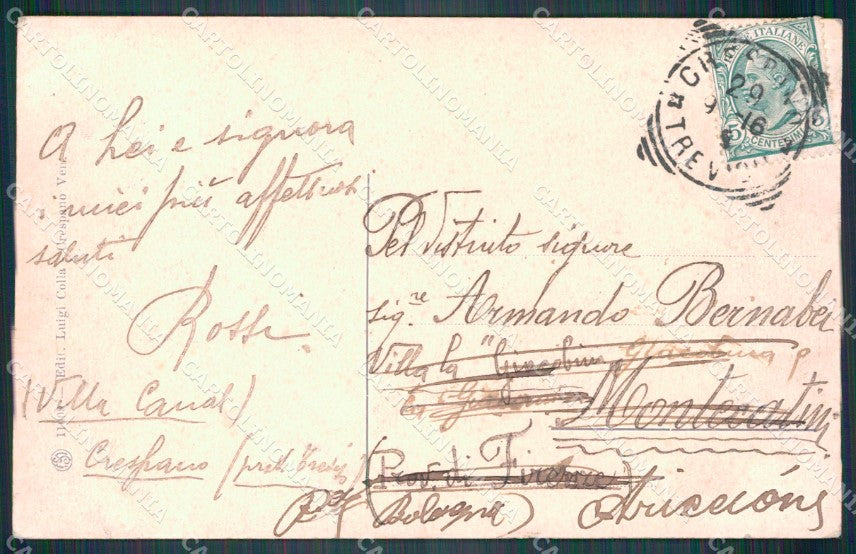 A Lei e signora
i miei più affettuosi
saluti
Rossi.
(Villa Canal)
Crespano (prov. Treviso)
Pel distinto signore
sigre Armando Bernabei
Villa la "Giacobina Giacobina
Montecatini
(Prov. di Firenze)
(Bologna) Riccione
CRESPANO
29
9 16
TREVISO
POSTE ITALIANE
5 CENTESIMI 5
Ediz. Luigi Colla - Crespano Ven.
CARTOLINOMANIA